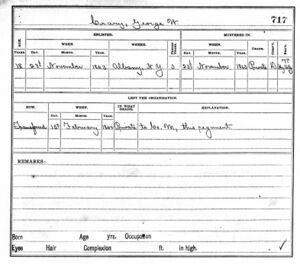 Crary, George W
717
ENLISTED. MUSTERED IN.
AGE. WHEN. WHERE. PERIOD YEARS. WHEN. GRADE. COMP'Y. REG'T.
DAY. MONTH. YEAR. DAY. MONTH. YEAR.
18 23d November 1863 Albany N.Y. 3 23d November 1863 Private D 7"
LEFT THE ORGANIZATION.
HOW. WHEN. IN WHAT GRADE. EXPLANATION.
DAY. MONTH. YEAR.
Transferred 1st February Private to Co. M, this regiment
REMARKS:
Born Age yrs. Occupation
Eyes Hair Complexion ft. in high.